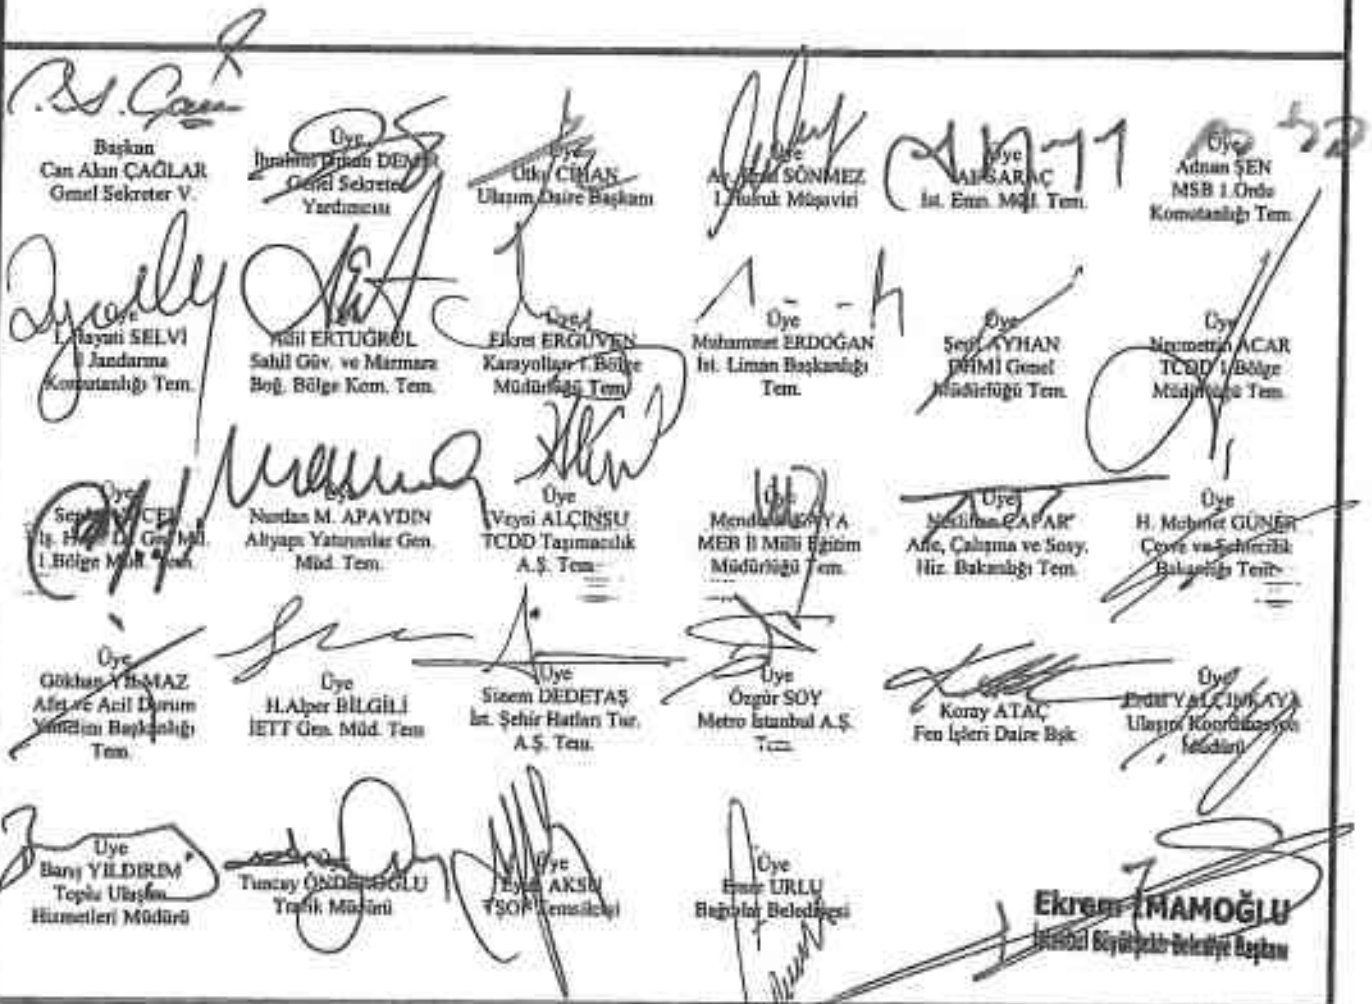 Başkan
Can Akın ÇAĞLAR
Genel Sekreter V.
Üye
İbrahim Orhan DEMİR
Genel Sekreter
Yardımcısı
Üye
Utku CİHAN
Ulaşım Daire Başkanı
Üye
Av. SÖNMEZ
1.Hukuk Müşaviri
Üye
Ali SARAÇ
İst. Emn. Müd. Tem.
Üye
Adnan ŞEN
MSB 1.Ordu
Komutanlığı Tem.
Hayati SELVİ
İl Jandarma
Komutanlığı Tem.
Adil ERTUĞRUL
Sahil Güv. ve Marmara
Boğ. Bölge Kom. Tem.
Üye
Fikret ERGÜVEN
Karayolları 1.Bölge
Müdürlüğü Tem.
Üye
Muhammet ERDOĞAN
İst. Liman Başkanlığı
Tem.
Üye
AYHAN
DHMİ Genel
Müdürlüğü Tem.
Üye
Necmettin ACAR
TCDD 1.Bölge
Müdürlüğü Tem.
Üye
1.Bölge Müd. Tem.
Nurdan M. APAYDIN
Altyapı Yatırımlar Gen.
Müd. Tem.
Üye
Veysi ALÇINSU
TCDD Taşımacılık
A.Ş. Tem.
Üye
MEB İl Milli Eğitim
Müdürlüğü Tem.
Üye
Neslihan CAFAR
Aile, Çalışma ve Sosy.
Hiz. Bakanlığı Tem.
Üye
H. Mehmet GÜNER
Çevre ve Şehircilik
Bakanlığı Tem.
Üye
Gökhan YILMAZ
Afet ve Acil Durum
Yönetim Başkanlığı
Tem.
Üye
H.Alper BİLGİLİ
İETT Gen. Müd. Tem
Üye
Sinem DEDETAŞ
İst. Şehir Hatları Tur.
A.Ş. Tem.
Üye
Özgür SOY
Metro İstanbul A.Ş.
Tem.
Koray ATAÇ
Fen İşleri Daire Bşk
Üye
Erdal YALÇINKAYA
Ulaşım Koordinasyon
Müdürü
Üye
Barış YILDIRIM
Toplu Ulaşım
Hizmetleri Müdürü
Üye
Tuncay ÖNDEROĞLU
Trafik Müdürü
Üye
AKSU
TŞOF Temsilcisi
Üye
URLU
Bağcılar Belediyesi
Ekrem İMAMOĞLU
İstanbul Büyükşehir Belediye Başkanı